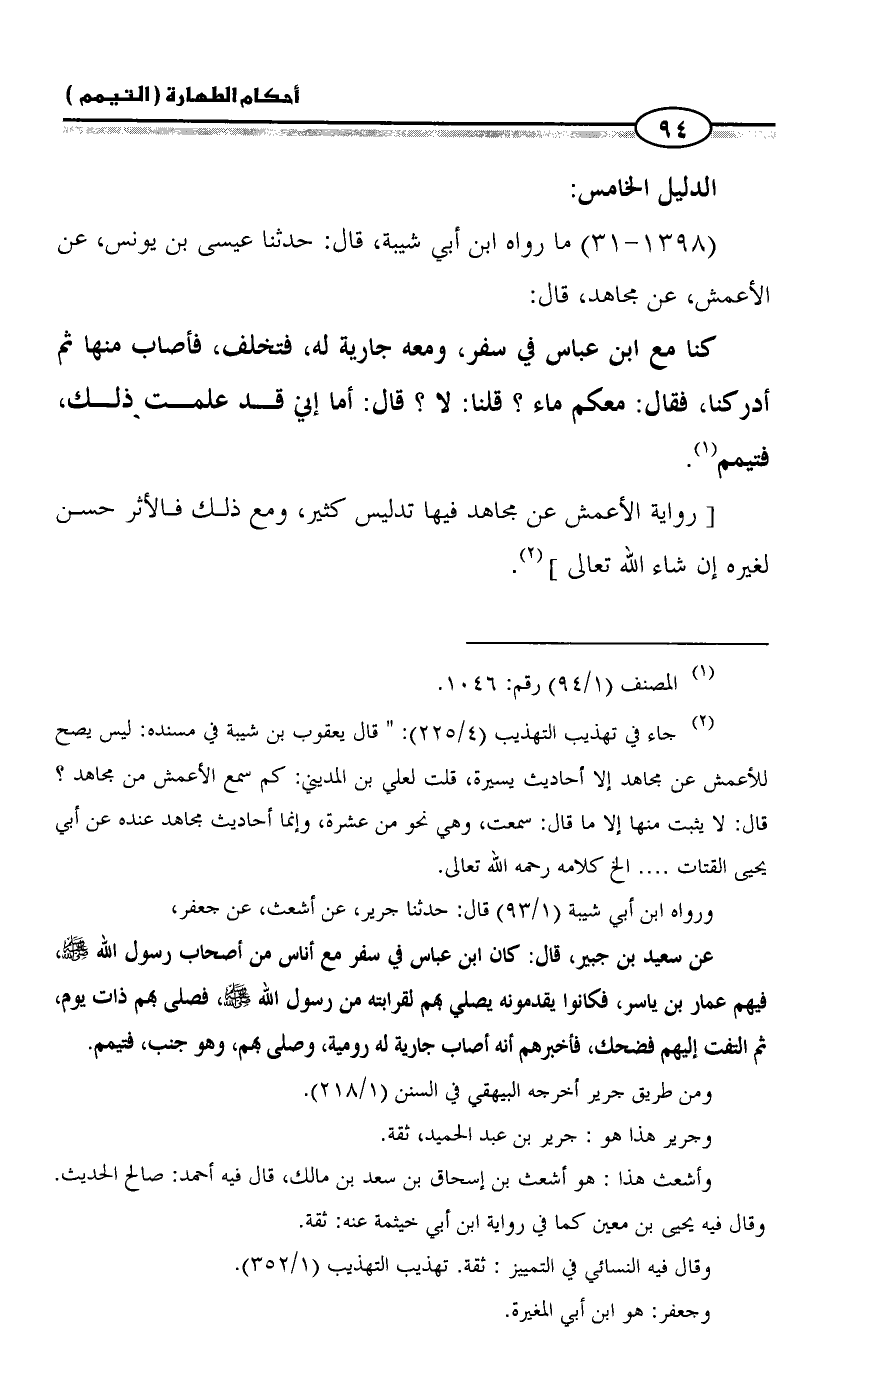 أحكام الطهارة ( التيمم )
٩٤
الدليل الخامس:
(١٣٩٨-٣١) ما رواه ابن أبي شيبة، قال: حدثنا عيسى بن يونس، عن
الأعمش، عن مجاهد، قال:
كنا مع ابن عباس في سفر، ومعه جارية له، فتخلف، فأصاب منها ثم
أدركنا، فقال: معكم ماء ؟ قلنا: لا ؟ قال: أما إني قد علمت ذلك،
فتيمم(١).
[ رواية الأعمش عن مجاهد فيها تدليس كثير، ومع ذلك فالأثر حسن
لغيره إن شاء الله تعالى ](٢).
(١) المصنف (٩٤/١) رقم: ١٠٤٦.
(٢) جاء في تهذيب التهذيب (٢٢٥/٤): " قال يعقوب بن شيبة في مسنده: ليس يصح
للأعمش عن مجاهد إلا أحاديث يسيرة، قلت لعلي بن المديني: كم سمع الأعمش من مجاهد ؟
قال: لا يثبت منها إلا ما قال: سمعت، وهي نحو من عشرة، وإنما أحاديث مجاهد عنده عن أبي
يحيى القتات .... الخ كلامه رحمه الله تعالى.
ورواه ابن أبي شيبة (٩٣/١) قال: حدثنا جرير، عن أشعث، عن جعفر،
عن سعيد بن جبير، قال: كان ابن عباس في سفر مع أناس من أصحاب رسول الله ﷺ،
فيهم عمار بن ياسر، فكانوا يقدمونه يصلي بهم لقرابته من رسول الله ﷺ، فصلى بهم ذات يوم،
ثم التفت إليهم فضحك، فأخبرهم أنه أصاب جارية له رومية، وصلى بهم، وهو جنب، فتيمم.
ومن طريق جرير أخرجه البيهقي في السنن (٢١٨/١).
وجرير هذا هو : جرير بن عبد الحميد، ثقة.
وأشعث هذا : هو أشعث بن إسحاق بن سعد بن مالك، قال فيه أحمد: صالح الحديث.
وقال فيه يحيى بن معين كما في رواية ابن أبي خيثمة عنه: ثقة.
وقال فيه النسائي في التمييز : ثقة. تهذيب التهذيب (٣٥٢/١).
وجعفر: هو ابن أبي المغيرة.